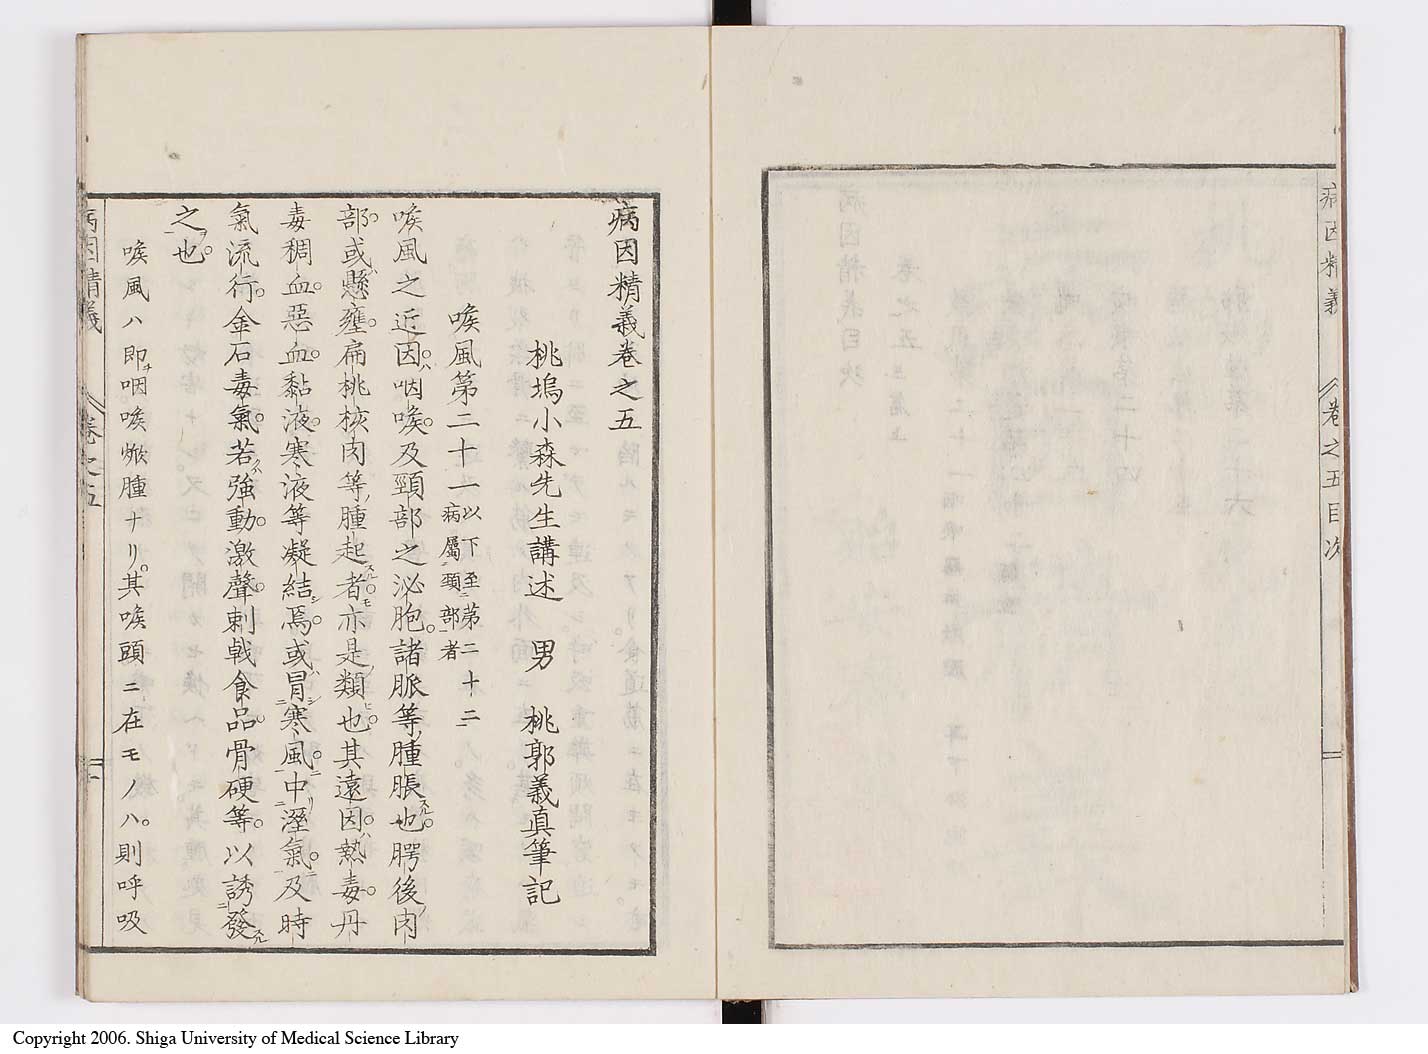 病因精義
卷之五目次
病因精義卷之五
桃塢小森先生講述　男　桃郭義真筆記
喉風第二十一以下至ニ第二十二ニ一病屬ニ頸部ニ者
喉風之近因ハ。咽喉。及頸部之泌胞。諸脈等ノ腫脹スル也。腭後ノ肉
部。或ハ懸壅。扁桃核肉等ノ腫起スル者モ。亦是ノ類也ヒ。其遠因ハ。熱毒。丹
毒稠血。惡血。黏液。寒液等凝結シ焉。或ハ冒シニ寒風ニ。中リニ溼氣ニ。及時
氣流行。金石毒氣。若クハ強動。激聲。刺戟食品。骨硬等。以誘ニ發スル
之ヲ也。
喉風ハ即チ咽喉焮腫ナリ。其喉頭ニ在モノハ。則呼吸
病因精義
卷之五